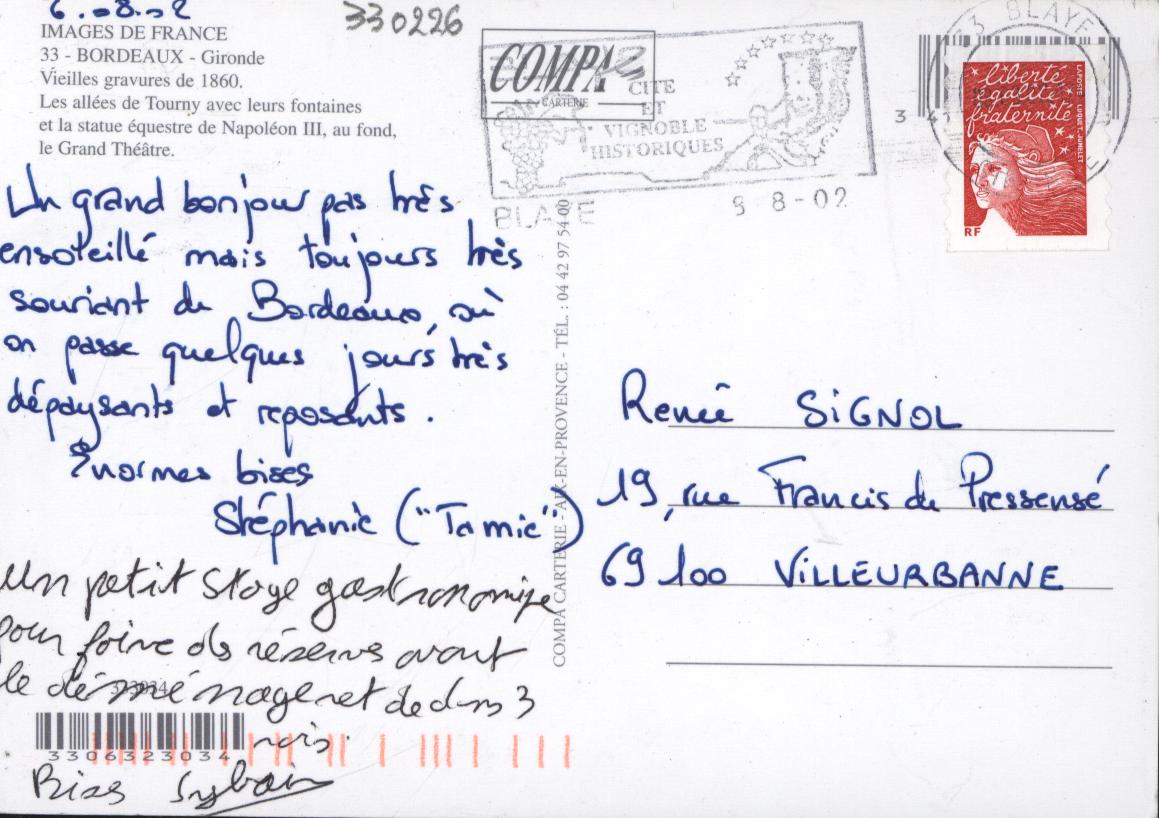 6.-08.-02
330226
IMAGES DE FRANCE
33 - BORDEAUX - Gironde
Vieilles gravures de 1860.
Les allées de Tourny avec leurs fontaines
et la statue équestre de Napoléon III, au fond,
le Grand Théâtre.
COMPA
CARTERIE
CITE
ET
VIGNOBLE
HISTORIQUES
BLAYE
8-02
33 BLAYE
liberté
égalité
fraternité
LAPOSTE LUQUET-JUMELET
RF
Un grand bonjour pas très
ensoleillé mais toujours très
souriant de Bordeaux, où
on passe quelques jours très
dépaysants et reposants.
Enormes bises
Stéphanie ("Tamie")
Un petit stage gastronomique
pour faire des réserves avant
le déménagement de dans 3
mois.
Bises Sylvain
3306323034
COMPA CARTERIE - AIX-EN-PROVENCE - TÉL. : 04 42 97 54 00
Renée SIGNOL
19, rue Francis de Pressensé
69100 VILLEURBANNE